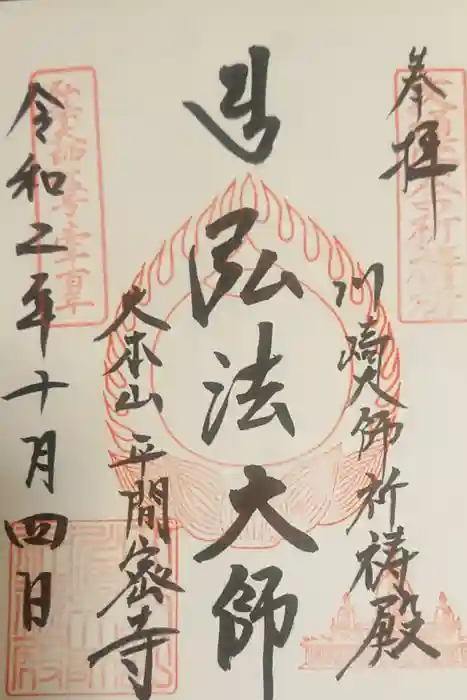 奉拝
川崎大師祈祷殿
弘法大師
大本山 平間密寺
令和二年十月四日